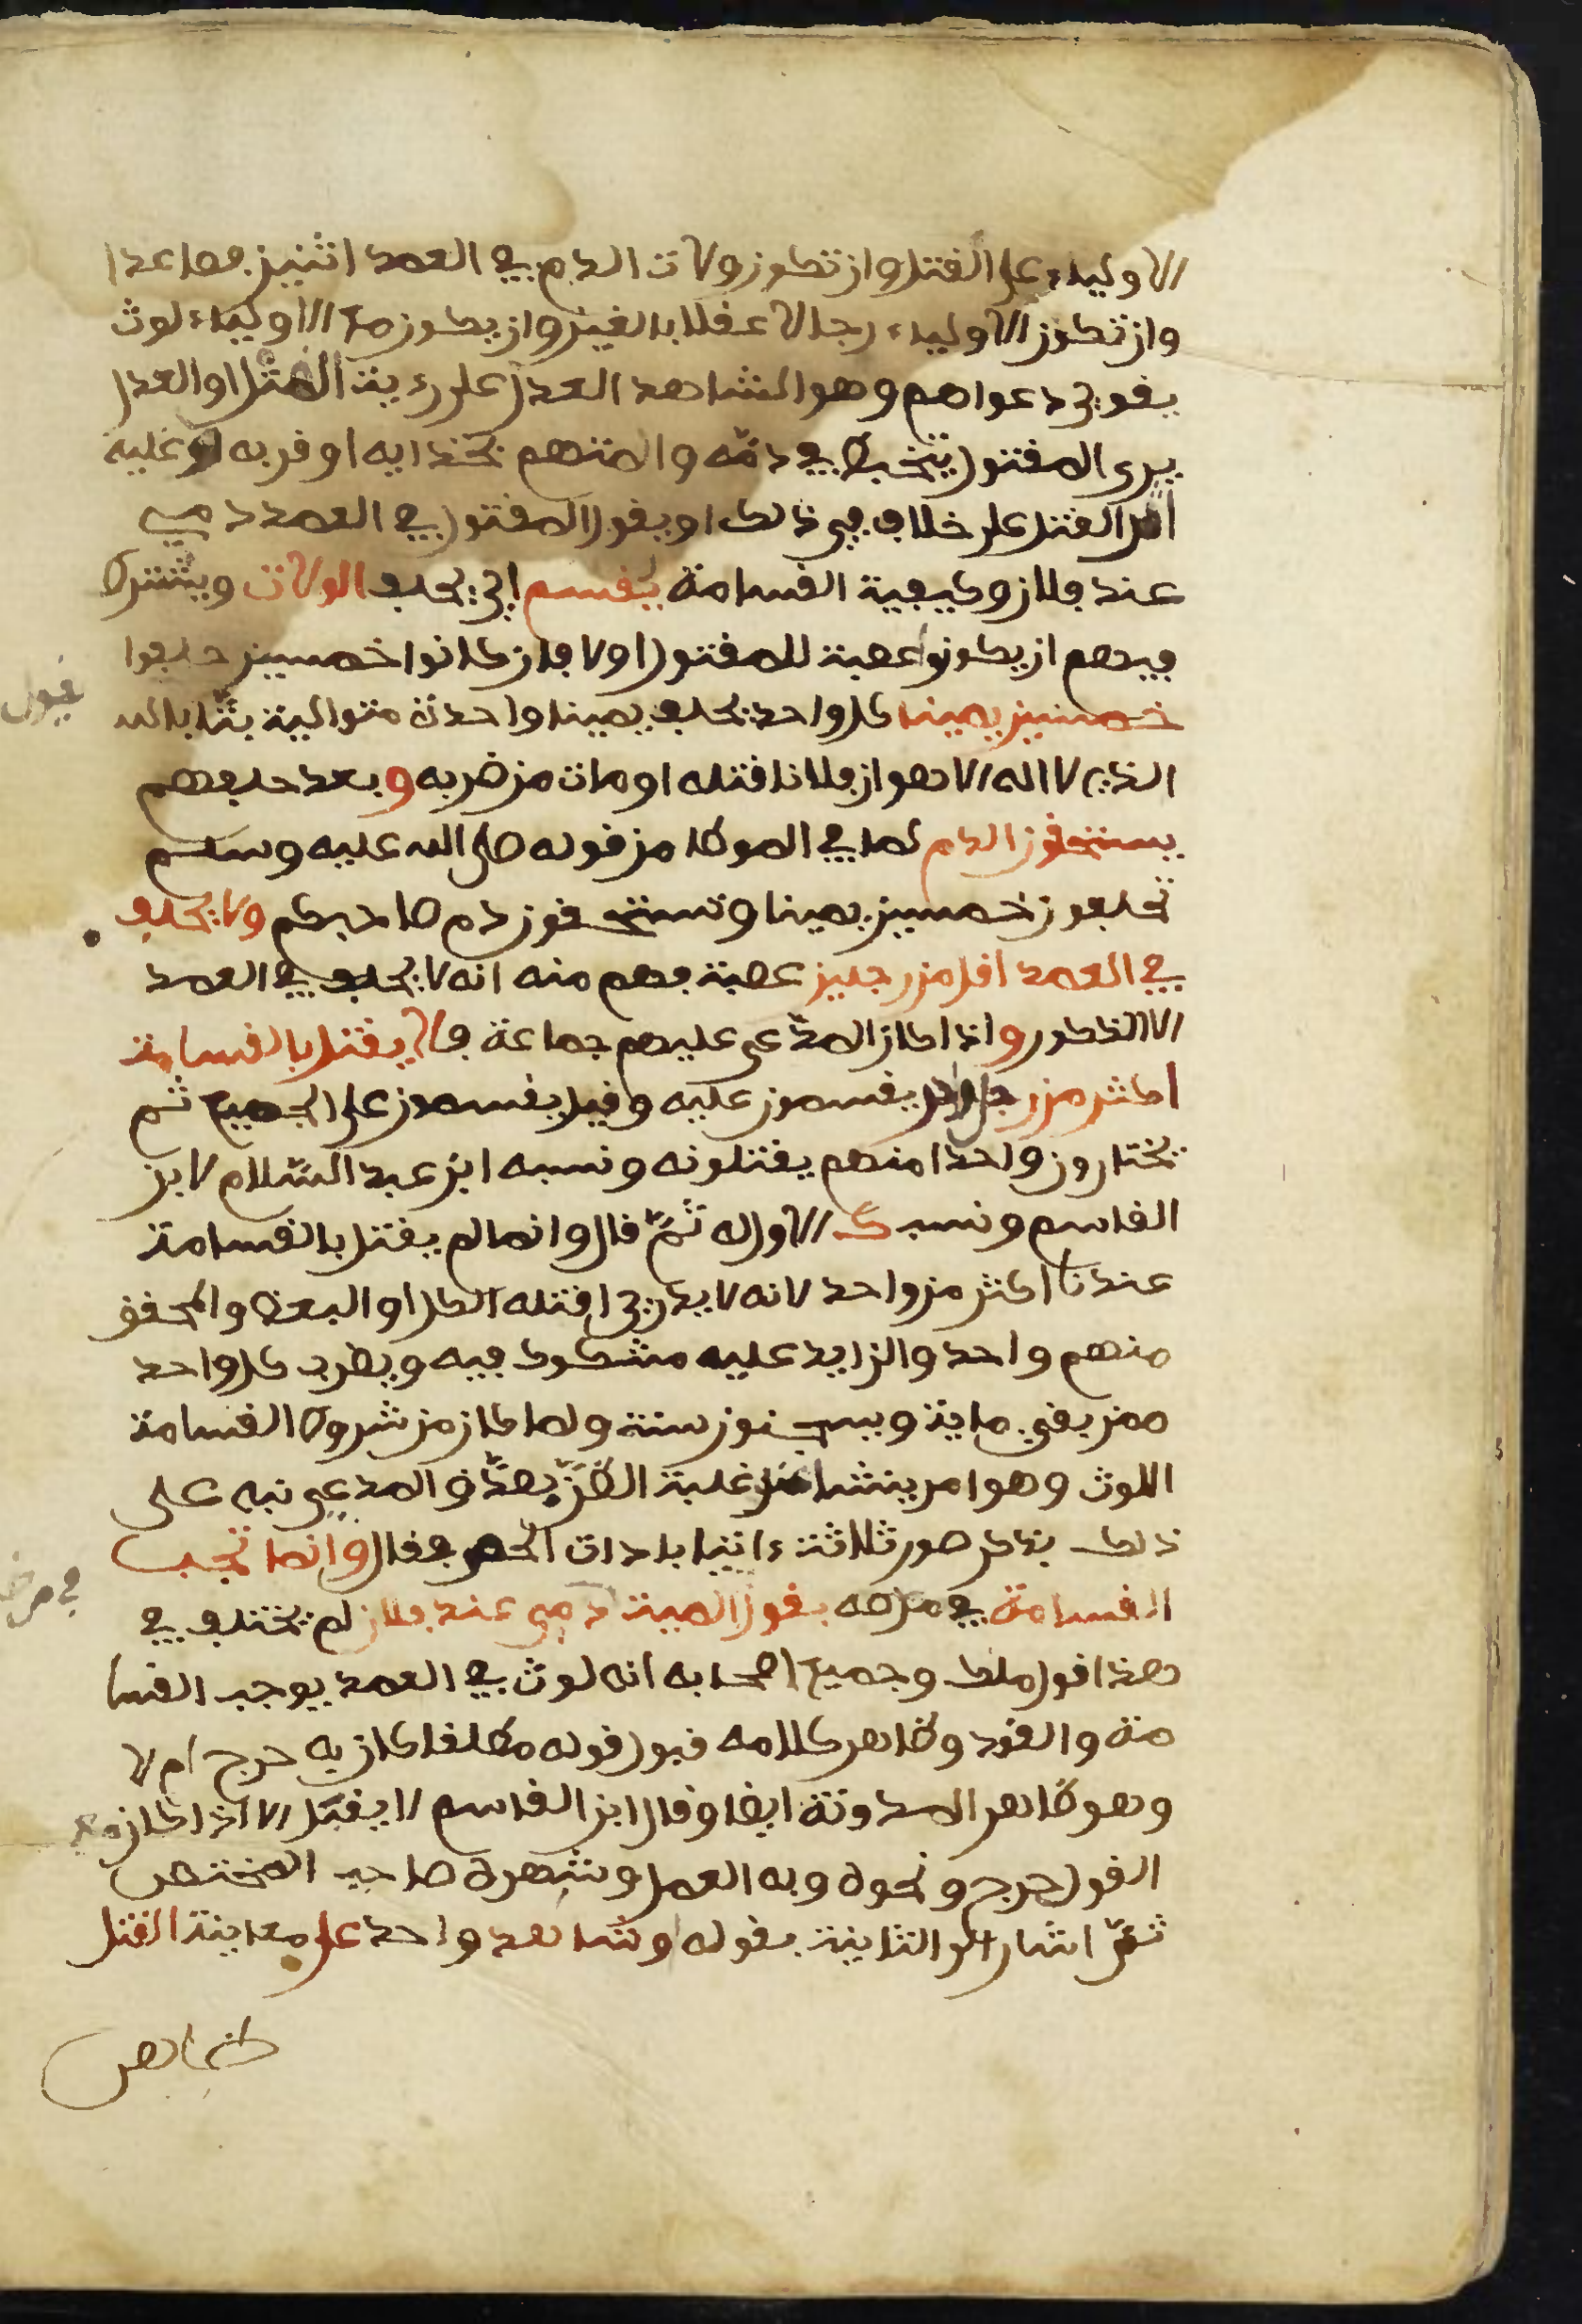 الاولياء على القتل وان تكون ولات الدم في العمد اثنين فصاعدا
وان تكون الاولياء رجالا عقلا بالغين وان يكون مع الاولياء لوث
يقوي دعواهم وهو الشاهد العدل على رءية القتل او العدل
يرى المقتول يتخبط في دمه والمتهم بحذايه او قربه عليه
اثر القتل على خلاف في ذلك او يقول المقتول في العمد دمي
عند فلان وكيفية القسامة يقسم اي يحلف الولات ويشترط
فيهم ان يكونوا عصبة للمقتول اولا فان كانوا خمسين حلفوا
خمسين يمينا كل واحد يحلف يمينا واحدة متوالية بتا بالله
الذي لا اله الا هو ان فلانا قتله او مات من ضربه وبعد حلفهم
يستحقون الدم لما في الموطا من قوله صلى الله عليه وسلم
تحلفون خمسين يمينا وتستحقون دم صاحبكم ولا يحلف
في العمد اقل من رجلين عصبة فهم منه انه لا يحلف في العمد
الا الذكور واذا كان المدعى عليهم جماعة فلا يقتل بالقسامة
اكثر من رجل واحد يقسمون عليه وقيل يقسمون على الجميع ثم
يختارون واحدا منهم يقتلونه ونسبه ابن عبد السلام لابن
القاسم ونسب ك الاول له ثم قال وانما لم يقتل بالقسامة
عندنا اكثر من واحد لانه لا يدري اقتله الكل او البعض والمحقق
منهم واحد والزايد عليه مشكوك فيه ويضرب كل واحد
ممن بقي ماية ويسجنون سنة ولما كان من شروط القسامة
اللوث وهو امر ينشا عنه غلبة الظن بصدق المدعي نبه على
ذلك بذكر صور ثلاثة ءاتيا بادات الحصر فقال وانما تجب
القسامة في مرضه بقول الميت دمي عند فلان لم يختلف في
هذا قول ملك وجميع اصحابه انه لوث في العمد يوجب القسا
مة والقود وظاهر كلامه قبول قوله مطلقا كان به جرح ام لا
وهو ظاهر المدونة ايضا وقال ابن القاسم لا يقبل الا اذا كان مع
القول جرح ونحوه وبه العمل وشهره صاحب المختصر
ثم اشار الى الثانية بقوله او شاهد واحد على معاينة القتل
قبول
في مرضه